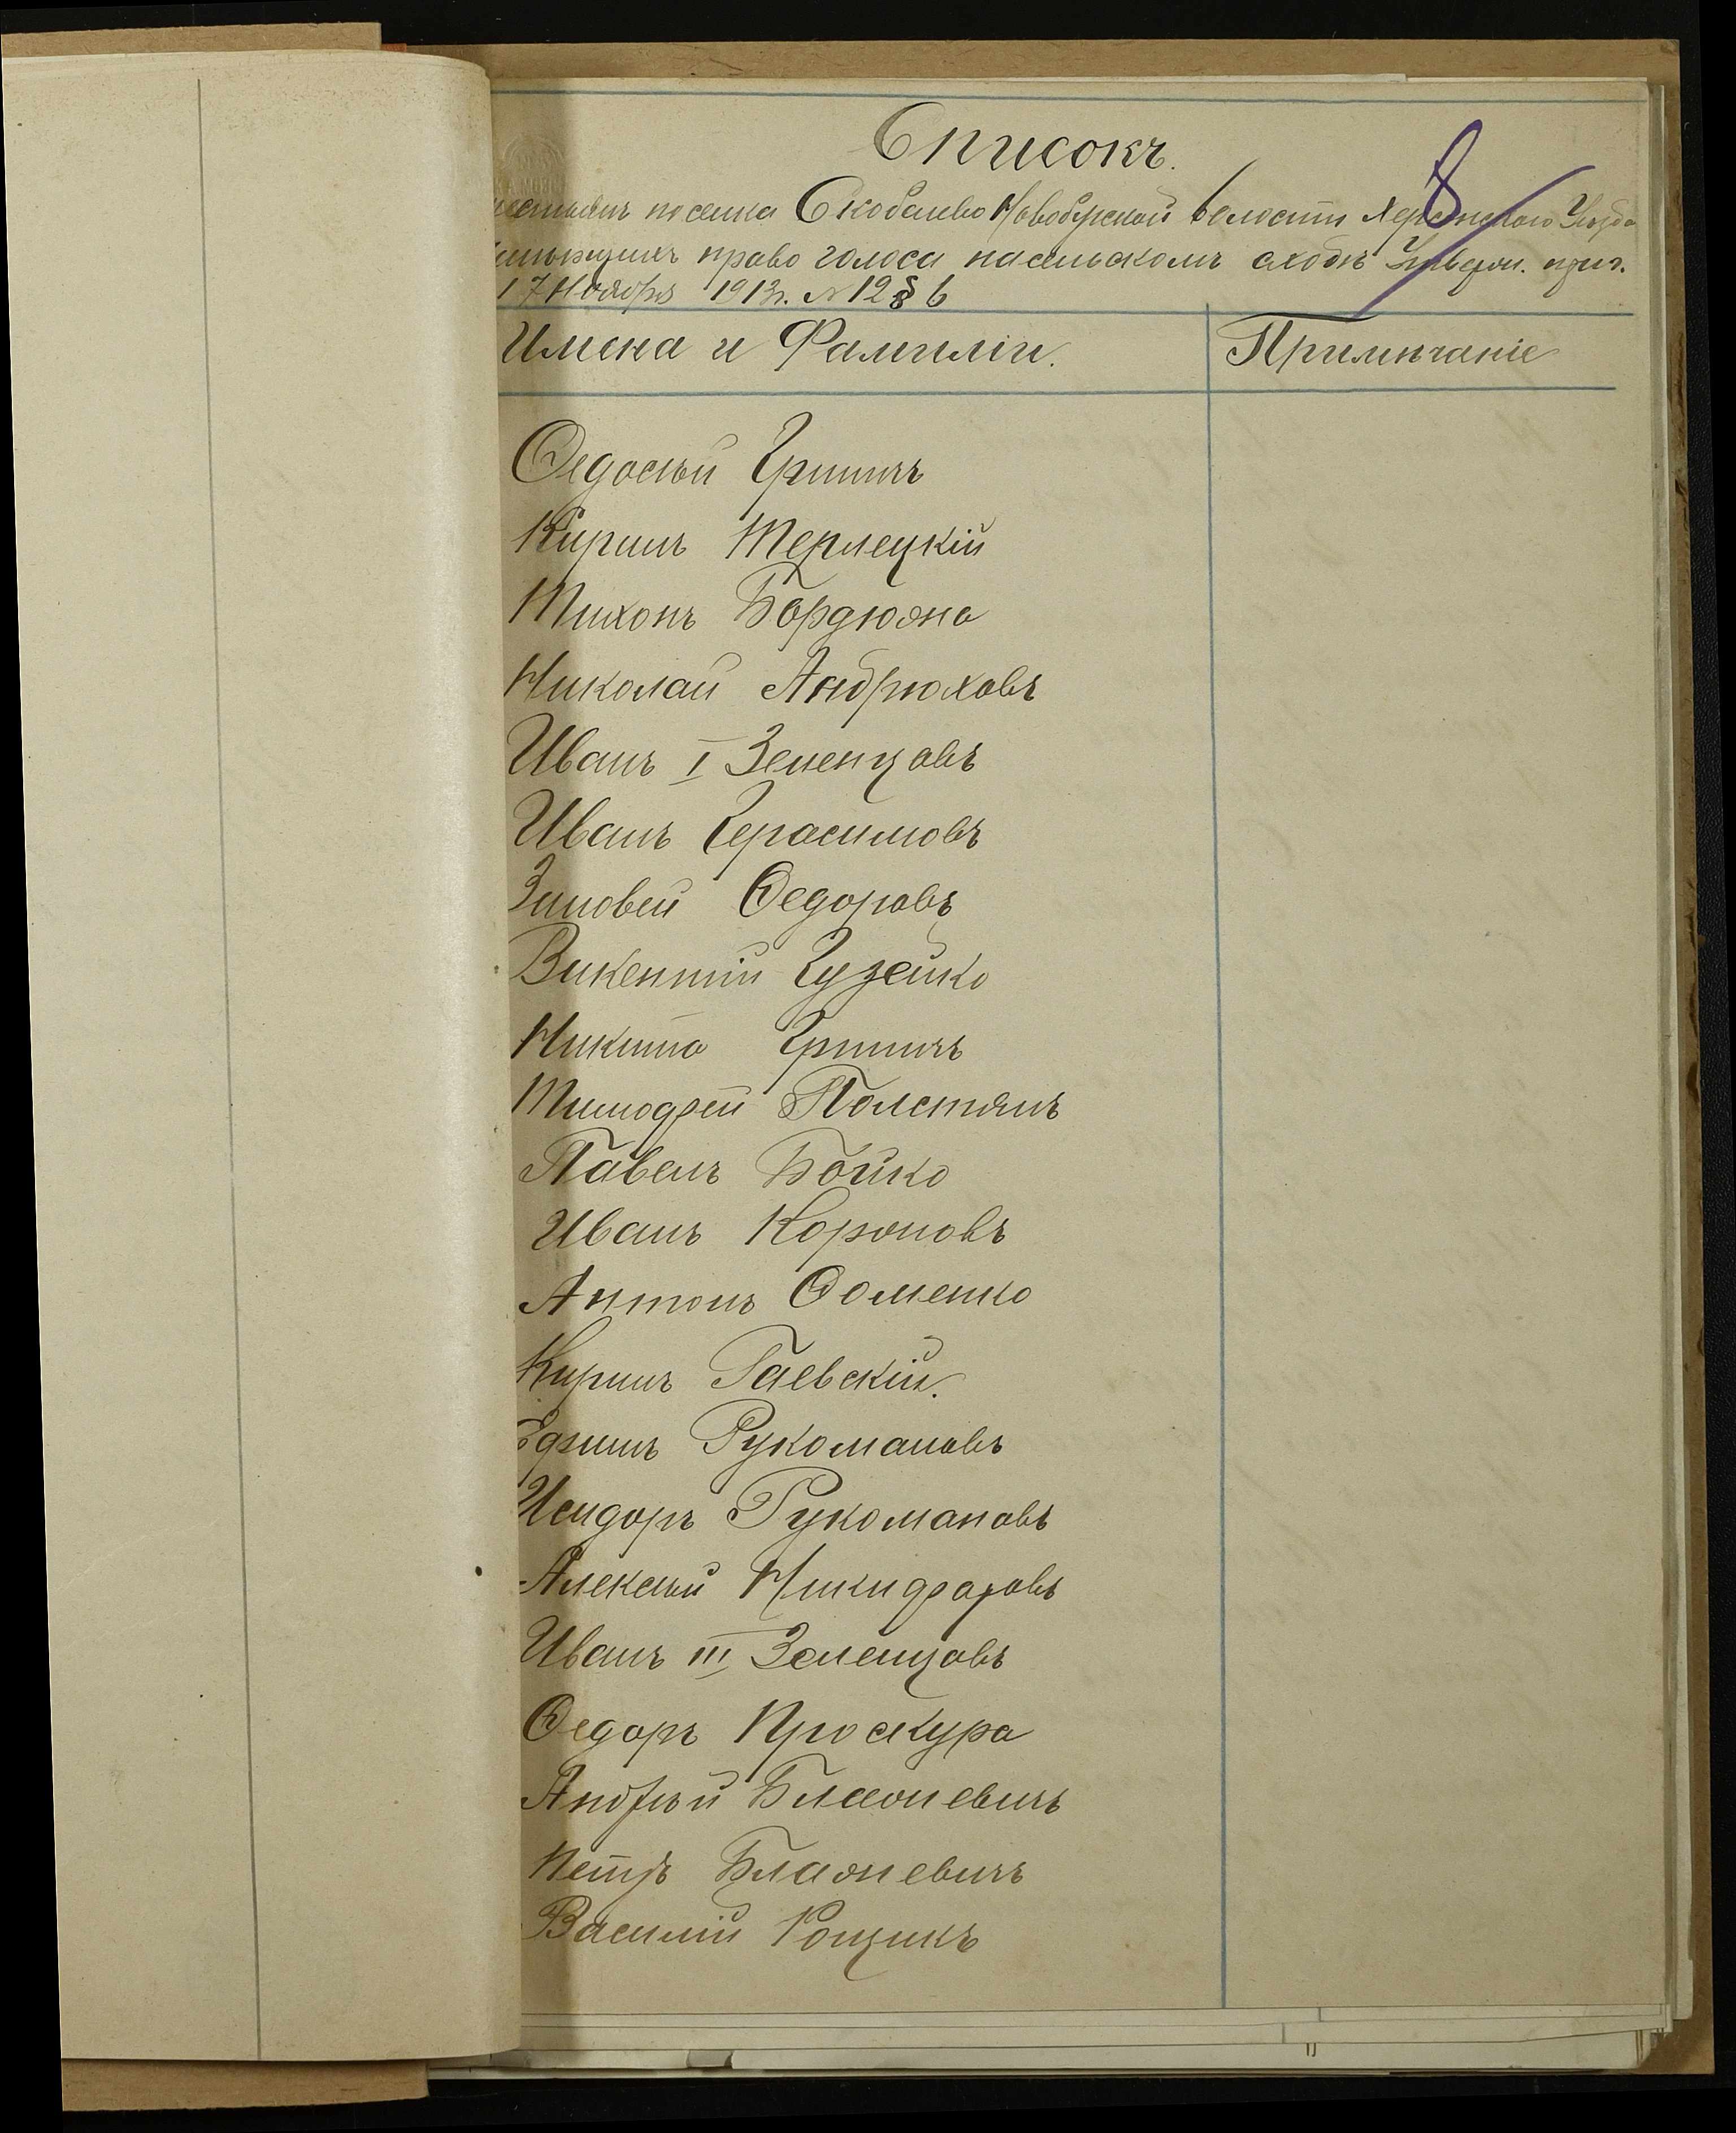 Списокъ.
8
поселка Скобелево Новобугской Волости Херсонскаго Уѣзда
право голоса на сельскомъ сходѣ
17 Ноября 1913г. № 1286
Имена и Фамиліи.
Примѣчаніе
Ѳедосѣй Гришич
Кирилъ Терлецкій
Тихонъ Бордюжа
Николай Андрюховъ
Иванъ I Зеленцовъ
Иванъ Герасимовъ
Зиновей Ѳедоровъ
Викентій Гузейко
Никита Гришич
Тимофей Полстянъ
Павелъ Бойко
Иванъ Короповъ
Антонъ Ѳоменко
Кирилъ Гаевскій.
Ефимъ Рукомановъ
Исидоръ Рукомановъ
Алексѣй Никифоровъ
Иванъ III Зеленцовъ
Ѳедоръ Проскура
Андрѣй Блажневичъ
Петръ Блажневичъ
Василій Рощикъ